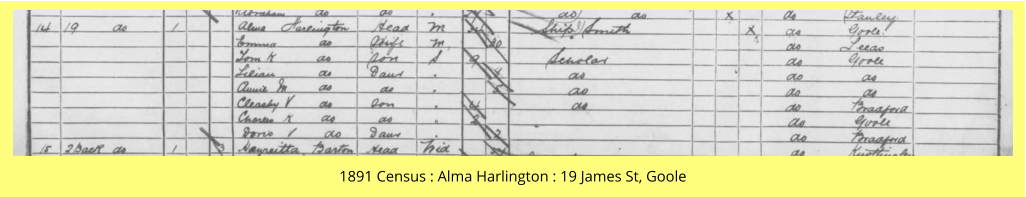 Abraham do do do do do X do Stanley
14 19 do 1 Alma Harlington Head M Ship Smith X do Goole
Emma do Wife M 30 do Leeds
Tom K do Son S 9 Scholar do Goole
Lilian do Daur . do do do
Annie M do do . 5 do do do
Clersby V do Son . 4 do do Bradford
Charles K do do . do Goole
Doris V do Daur . 2 do Bradford
15 2 Back do 1 3 Barton Head Wid do
1891 Census : Alma Harlington : 19 James St, Goole